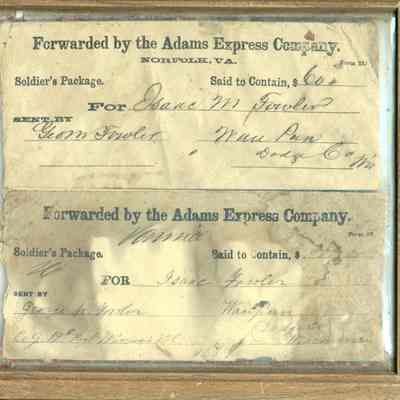 Forwarded by the Adams Express Company.
NORFOLK, VA.
Soldier's Package. Said to Contain, $ 60
For Isaac M Fowler
SENT BY
Geo M Fowler Wau Pun
Dodge Co
Wis
Forwarded by the Adams Express Company.
Soldier's Package. Said to Contain, $
FOR Isaac Fowler
SENT BY
George M Fowler Waupun